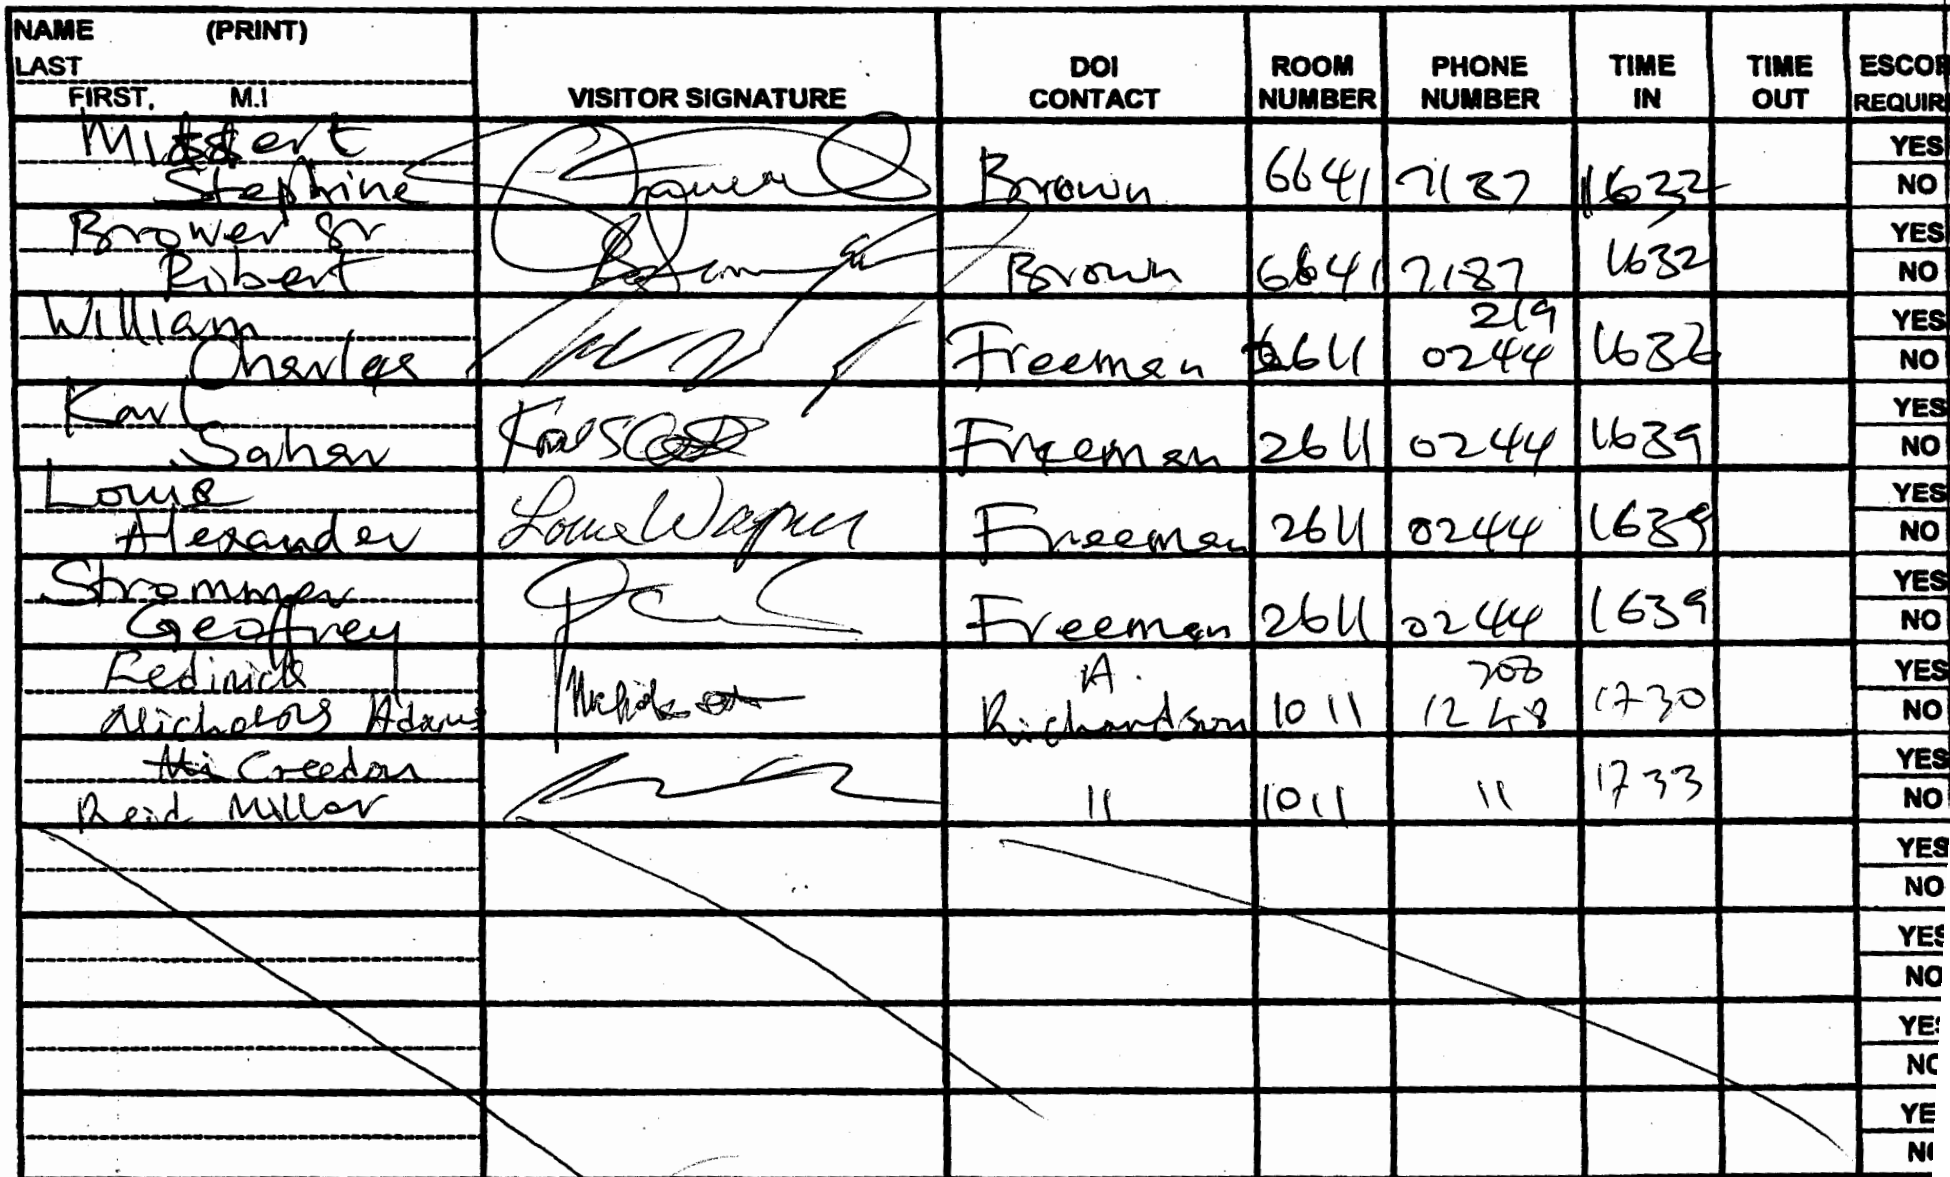 NAME (PRINT)
LAST
FIRST, M.I
VISITOR SIGNATURE
DOI CONTACT
ROOM NUMBER
PHONE NUMBER
TIME IN
TIME OUT
ESCOR
REQUIR
Stephine
Brown 6641 7187 1632
YES
NO
Brower Sr
Robert
Brown 6641 7187 1632
YES
NO
William
Charles
Freeman 2611 219 0244 1632
YES
NO
Karl
Sahar
Freeman 2611 0244 1639
YES
NO
Louis
Alexander
Louis Wagner
Freeman 2611 0244 1639
YES
NO
Strommer
Geoffrey
Freeman 2611 0244 1639
YES
NO
Nicholas Adams
A. Richardson 1011 1248 1730
YES
NO
Creedon
Reid Millar
11 1011 11 1733
YES
NO
YES
NO
YES
NO
YES
NO
YE
NO